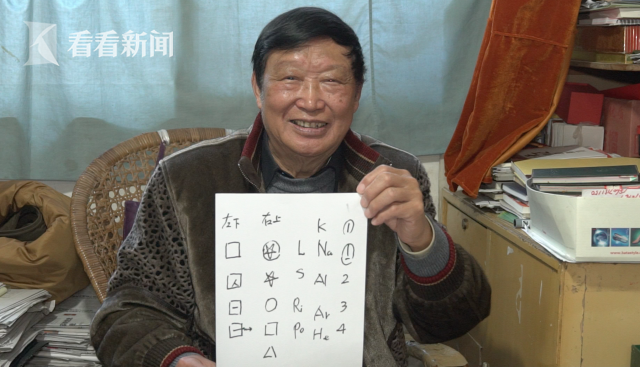 看看新闻
左下 右上 K ①
L Na ①
S Al 2
Ri Ar 3
Po He 4